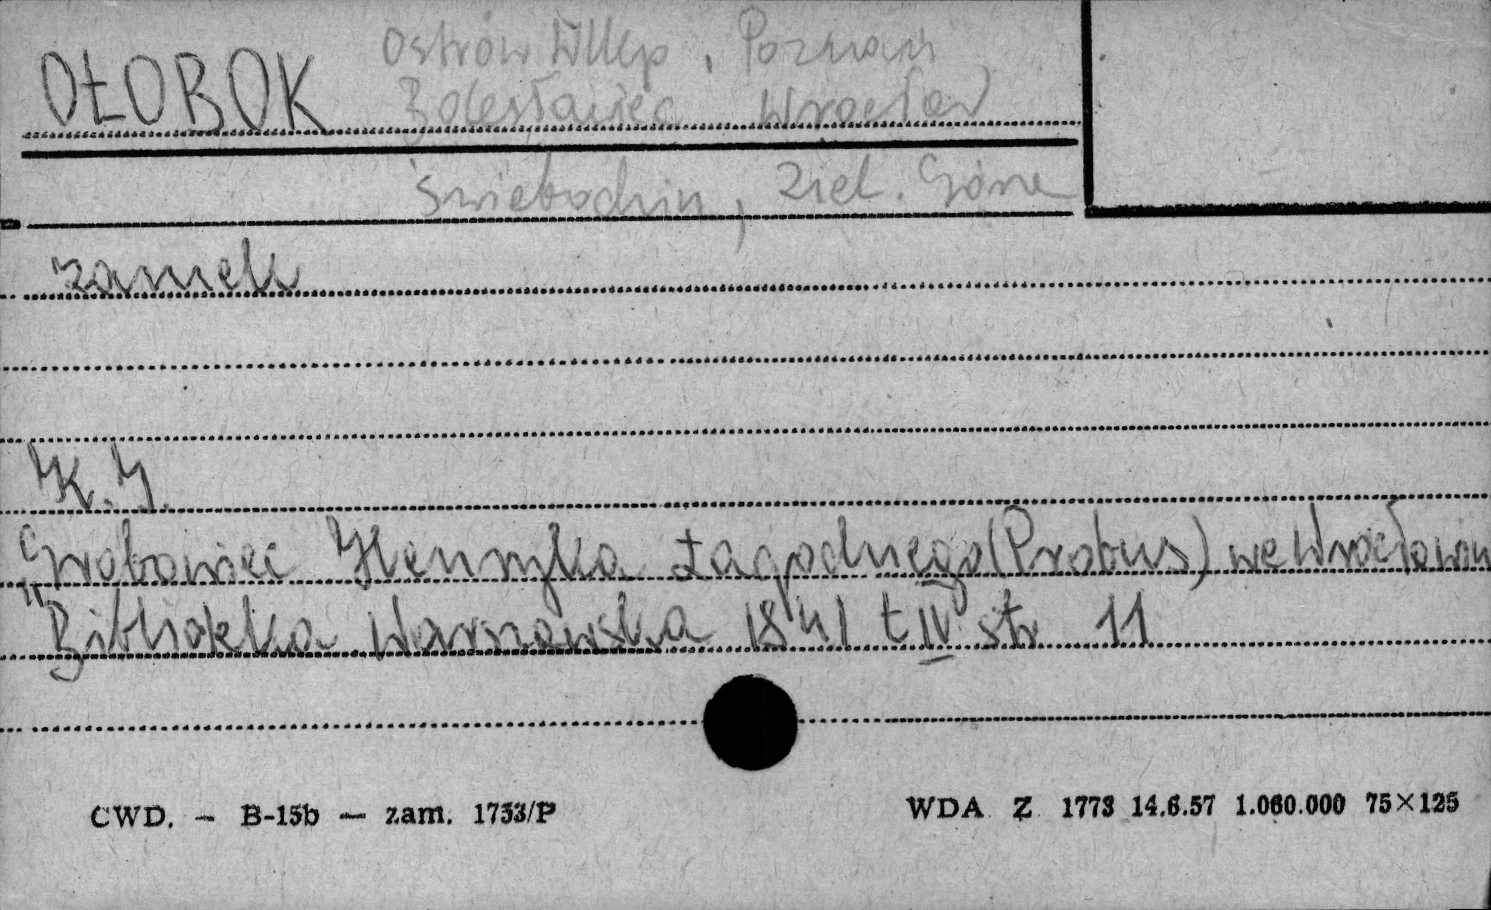 OŁOBOK
Ostrów Wlkp, Poznań
Bolesławiec Wrocław
Świebodzin, Ziel. Góra
zamek
K. J.
Grobowiec Henryka Łagodnego (Probus) we Wrocławiu
"Biblioteka Warszawska 1841 t IV str 11
CWD. — B-15b — zam. 1753/P
WDA Z 1773 14.6.57 1.060.000 75×125